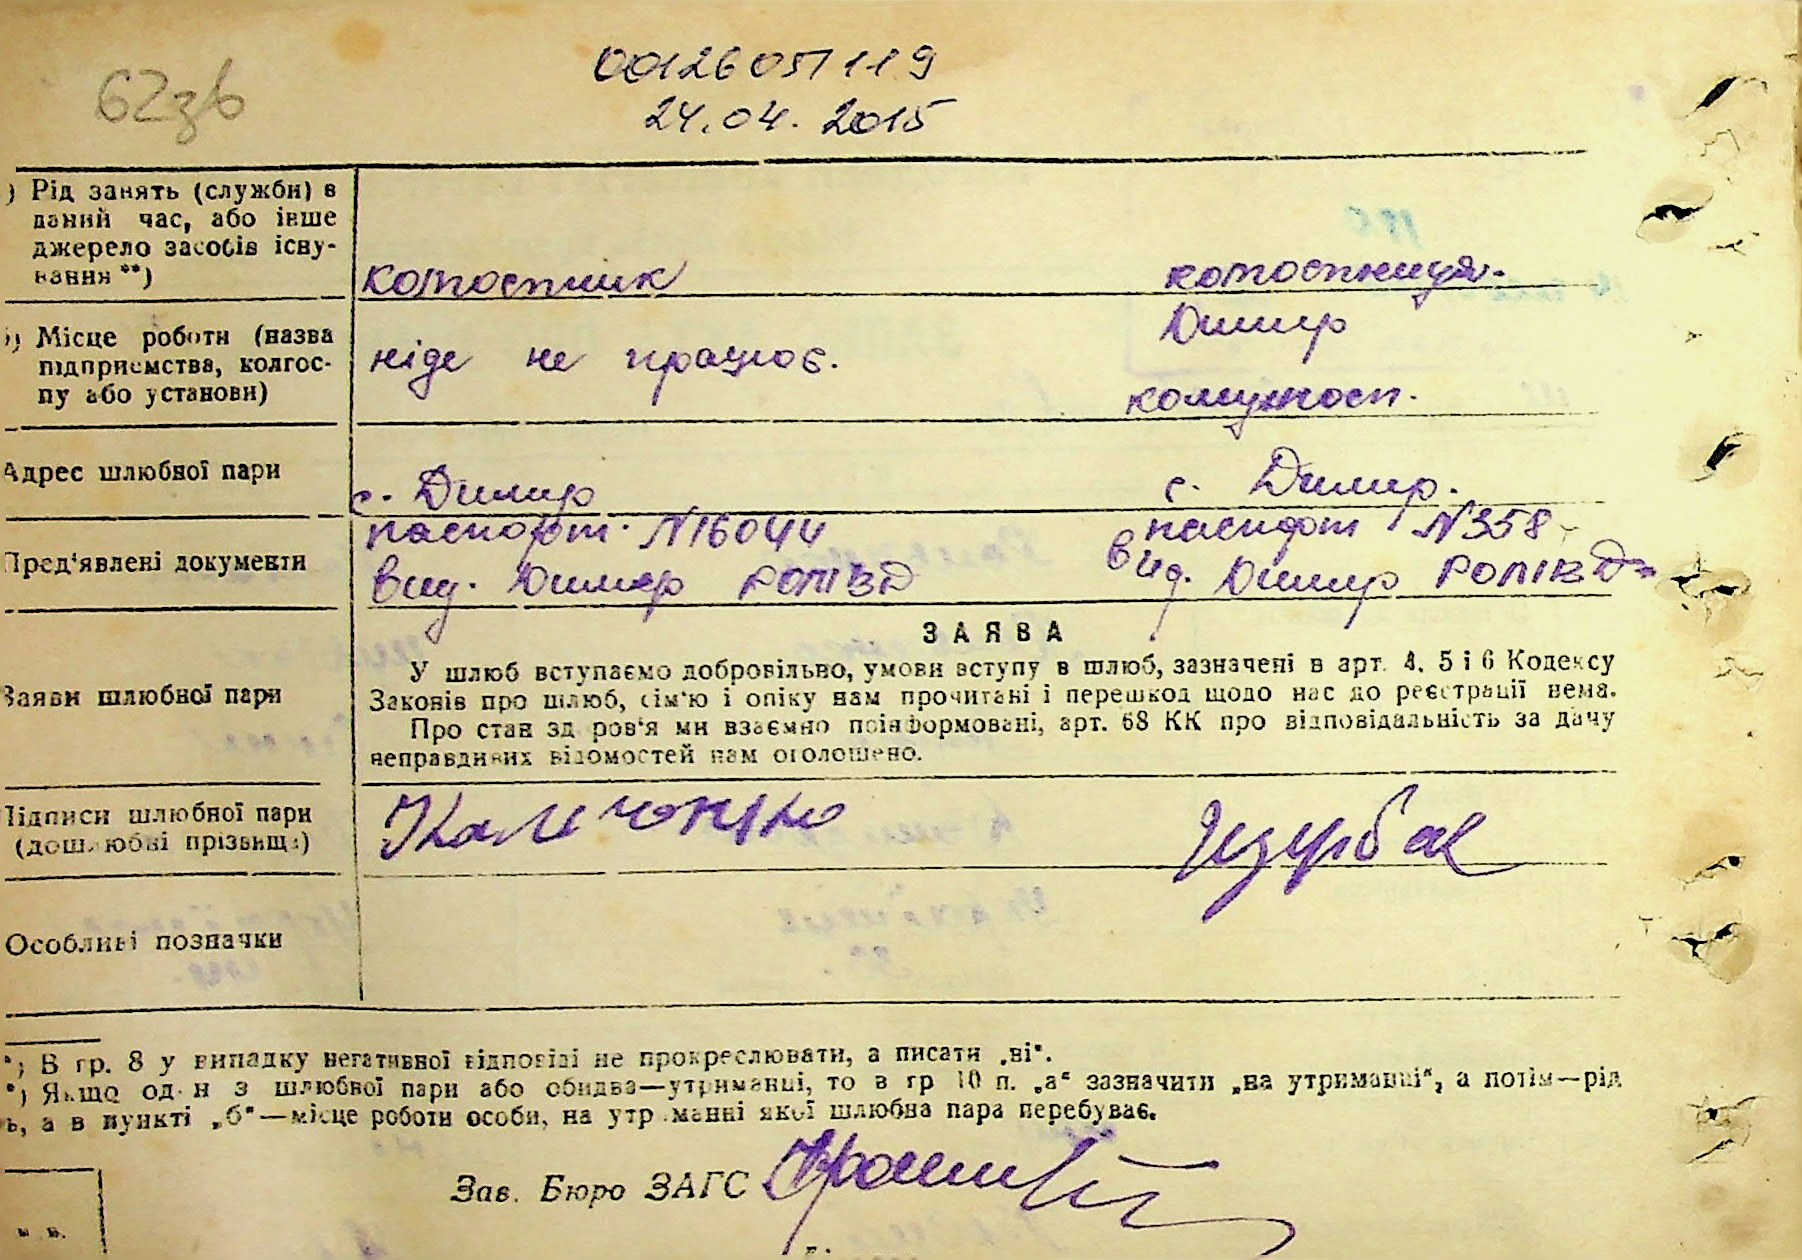 62зв
00126051119
24.04.2015
) Рід занять (служби) в
даний час, або інше
джерело засобів існу-
вання **)
колгоспник колгоспниця.
) Місце роботи (назва
підприємства, колгос-
пу або установи)
ніде не працює.
Димир
комунгосп.
Адрес шлюбної пари
с. Димир с. Димир.
Пред'явлені документи
паспорт №16044 паспорт №358
вид. Димер РОМІВД вид. Димир РОМІВД
ЗАЯВА
Заяви шлюбної пари
У шлюб вступаємо добровільно, умови вступу в шлюб, зазначені в арт. 4, 5 і 6 Кодексу
Законів про шлюб, сім'ю і опіку нам прочитані і перешкод щодо нас до реєстрації нема.
Про стан здоров'я ми взаємно поінформовані, арт. 68 КК про відповідальність за дачу
неправдивих відомостей нам оголошено.
Підписи шлюбної пари
(дошлюбні прізвища)
Щербак
Особливі позначки
*) В гр. 8 у випадку негативної відповіді не прокреслювати, а писати „ні".
*) Якщо один з шлюбної пари або обидва—утриманці, то в гр 10 п. „а" зазначити „на утриманні", а потім—рід
ь, а в пункті „б"—місце роботи особи, на утриманні якої шлюбна пара перебуває.
Зав. Бюро ЗАГС
м. п.